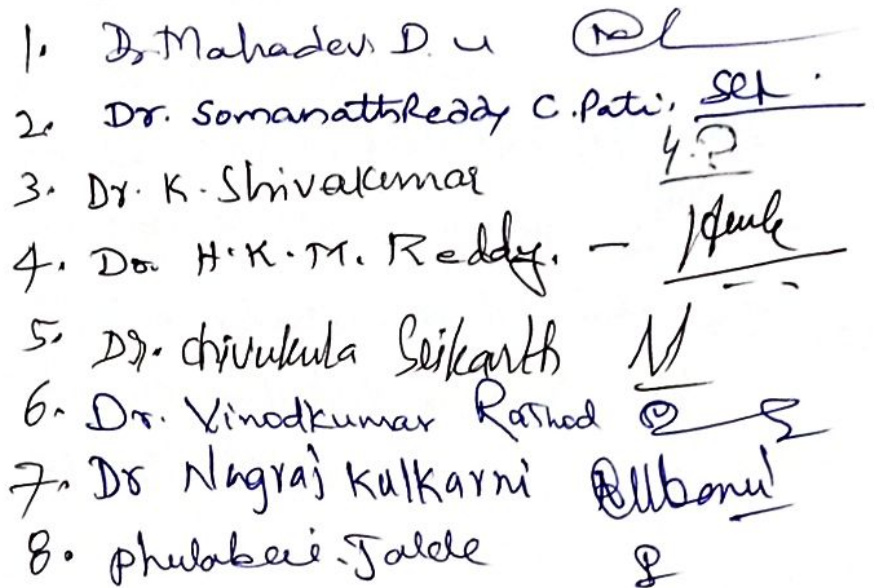 1. Dr Mahadev D. U
2. Dr. Somanath Reddy C. Pati.
3. Dr. K. Shivakumar
4. Dr. H.K.M. Reddy. -
5. Dr. chivukula Srikanth
6. Dr. Vinodkumar Rathod
7. Dr Nagraj Kulkarni
8. phulabai. Jalde